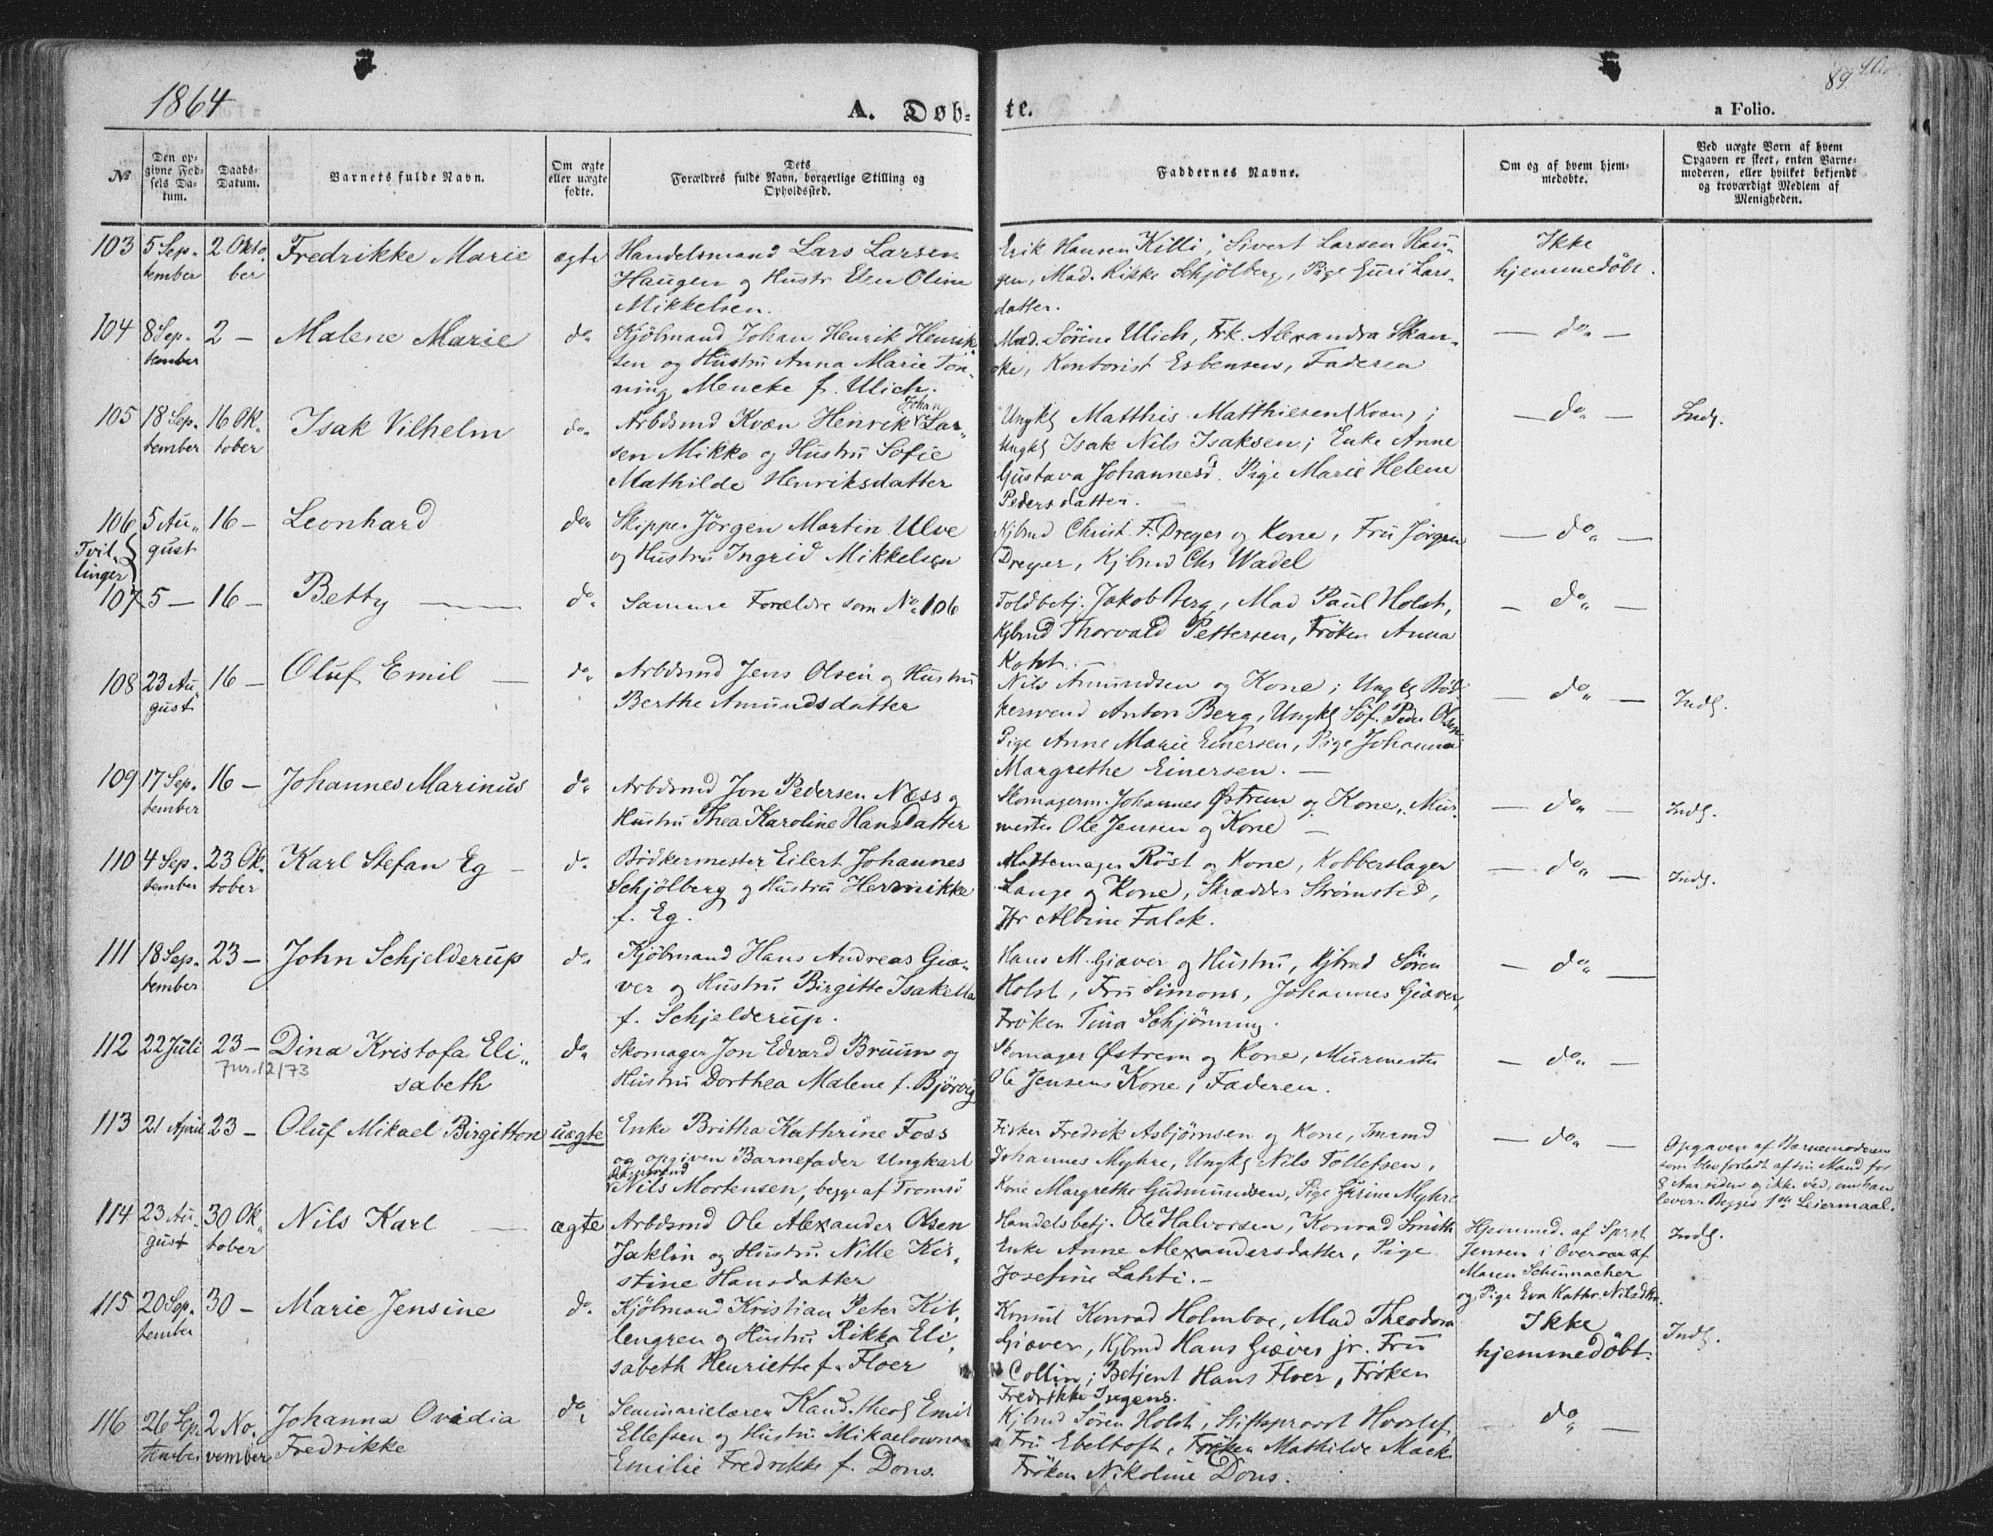 1864
A. Døb-
te.
a Folio.
89
№
Den op-
givne Fød-
sels Da-
tum.
Daabs-
Datum.
Barnets fulde Navn.
Om ægte
eller uægte
fødte.
Dets
Forældres fulde Navn, borgerlige Stilling og
Opholdssted.
Faddernes Navne.
Om og af hvem hjem-
medøbte.
Ved uægte Born af hvem
Opgaven er skeet, enten Barne-
moderen, eller hvilket bekjendt
og troværdigt Medlem af
Menigheden.
103 5 Sep-
tember
2 Okto
ber
Fredrikke Marie
ægte
Handelsmand Lars Larsen
Haugen og Hustr Elen Oline
Mikkelsen.
Erik Hansen Killi, Sivert Larsen Hau-
gen, Mad. Rikke Schjölberg, Pige Guri Lars-
datter.
Ikke
hjemmedöbt.
104 8 Sep-
tember
2 —
Malene Marie
do
Kjöbmand Johan Henrik Henrik-
sen og Hustru Anna Marie Tön-
ning Mencke f. Ulich.
Mad. Sörene Ulich, Frk. Alexandra Skan-
ke, Kontorist Esbensen, Faderen
— do —
105 18 Sep-
tember
16 Ok-
tober
Isak Vilhelm
do
Johan
Arbdsmd Kvæn Henrik Lar-
sen Mikko og Hustru Sofie
Mathilde Henriksdatter
Ungk Matthis Matthiesen (Kvæn);
Ungk Isak Nils Isaksen; Enke Anne
Gustava Johannesd. Pige Marie Helene
Pedersdatter.
— do —
Inds.
106
Tvil-
linger
5 Au-
gust
16 —
Leonhard
do
Skipper Jörgen Martin Ulve
og Hustru Ingrid Mikkelsen
Kjbmd Christ. F. Dreyer og Kone, Fru Jörgen
Dreyer, Kjbmd Chr Wadel
— do —
107 5 —
16 —
Betty
do
Samme Forældre som No 106
Toldbetj. Jakob Berg, Mad Paul Holst,
Kjbmd Thorvald Pettersen, Fröken Anna
Holst.
— do —
108 23 Au-
gust
16 —
Oluf Emil —
do
Arbdsmd Jens Olsen og Hustru
Berthe Amundsdatter
Nils Amundsen og Kone; Ungk Böd-
kersvend Anton Berg, Ungk Söf. Peder Olsen
Pige Anne Marie Einersen, Pige Johanna
Margrethe Einersen. —
— do —
Inds.
109 17 Sep-
tember
16 —
Johannes Marinus
do
Arbdsmd Jon Pedersen Næss og
Hustru Thea Karoline Hansdatter
Skomagerm. Johannes Östrem og Kone, Mur-
mester Ole Jensen og Kone —
— do —
Inds.
110 4 Sep-
tember
23 Ok-
tober
Karl Stefan Eg —
do
Bödkermester Eilert Johannes
Schjölberg og Hustru Hennikke
f. Eg.
Hattemager Röst og Kone, Kobberslager
Lange og Kone, Skrædder Strömsted,
Fr Albine Falck.
— do —
Inds.
111 18 Sep-
tember
23 —
John Schjelderup
do
Kjöbmand Hans Andreas Giæ-
ver og Hustru Birgitte Isakella
f. Schjelderup.
Hans M. Giæver og Hustru, Kjbmd Sören
Holst, Fru Simons, Johannes Giæver,
Fröken Tina Schjönning.
— do —
112 22 Juli
23 —
Jvr. 12/73
Dina Kristofa Eli-
sabeth
do
Skomager Jon Edvard Bruun og
Hustru Dorthea Malene f. Björvig
Skomager Östrem og Kone, Murmester
Ole Jensens Kone, Faderen.
— do —
113 21 April
23 —
Oluf Mikael Birgitton
uægte
Enke Britha Kathrine Foss
og opgiven Barnefader Ungkarl
Nils Mortensen, begge af Tromsö
Fisker Fredrik Asbjörnsen og Kone, Inrmd
Johannes Myhre, Ungk Nils Tollefsen,
Kone Margrethe Gudmundsen, Pige Jörine Myhre
— do —
Opgaven af Barnemoderen
som blev forladt af sin Mand for
8 Aar siden og ikke ved, om han
lever. Begges 1ste Leiermaal.
114 23 Au-
gust
30 Ok-
tober
Nils Karl —
ægte
Arbdsmd Ole Alexander Olsen
Jaklin og Hustru Nille Kir-
stine Hansdatter
Handelsbetj. Ole Halvorsen, Konrad Smith
Enke Anne Alexandersdatter, Pige
Josefine Lahti. —
Hjemmed. af
Jensen i Overvær af
Maren Schumacher
og Pige Eva Kathr. Nilsdtr.
Inds.
115 20 Sep-
tember
30 —
Marie Jensine
do
Kjöbmand Kristian Peter Kil-
lengren og Hustru Rikka Eli-
sabeth Henriette f. Floer
Konsul Konrad Holmboe, Mad Theodora
Giæver, Kjbmd Hans Giæver jr. Fru
Collin; Betjent Hans Floer, Fröken
Fredrikke Irgens.
Ikke
hjemmedöbt.
Inds.
116 26 Sep
tember
2 No-
vember
Johanna Ovidia
Fredrikke
do
Seminarielærer Kand. theol Emil
Ellefsen og Hustru Mikaelowna
Emilie Fredrikke f. Dons.
Kjbmd Sören Holst, Stiftsprovst Hvoslef,
Fru Ebeltoft, Fröken Mathilde Mack
Fröken Nikoline Dons.
— do —